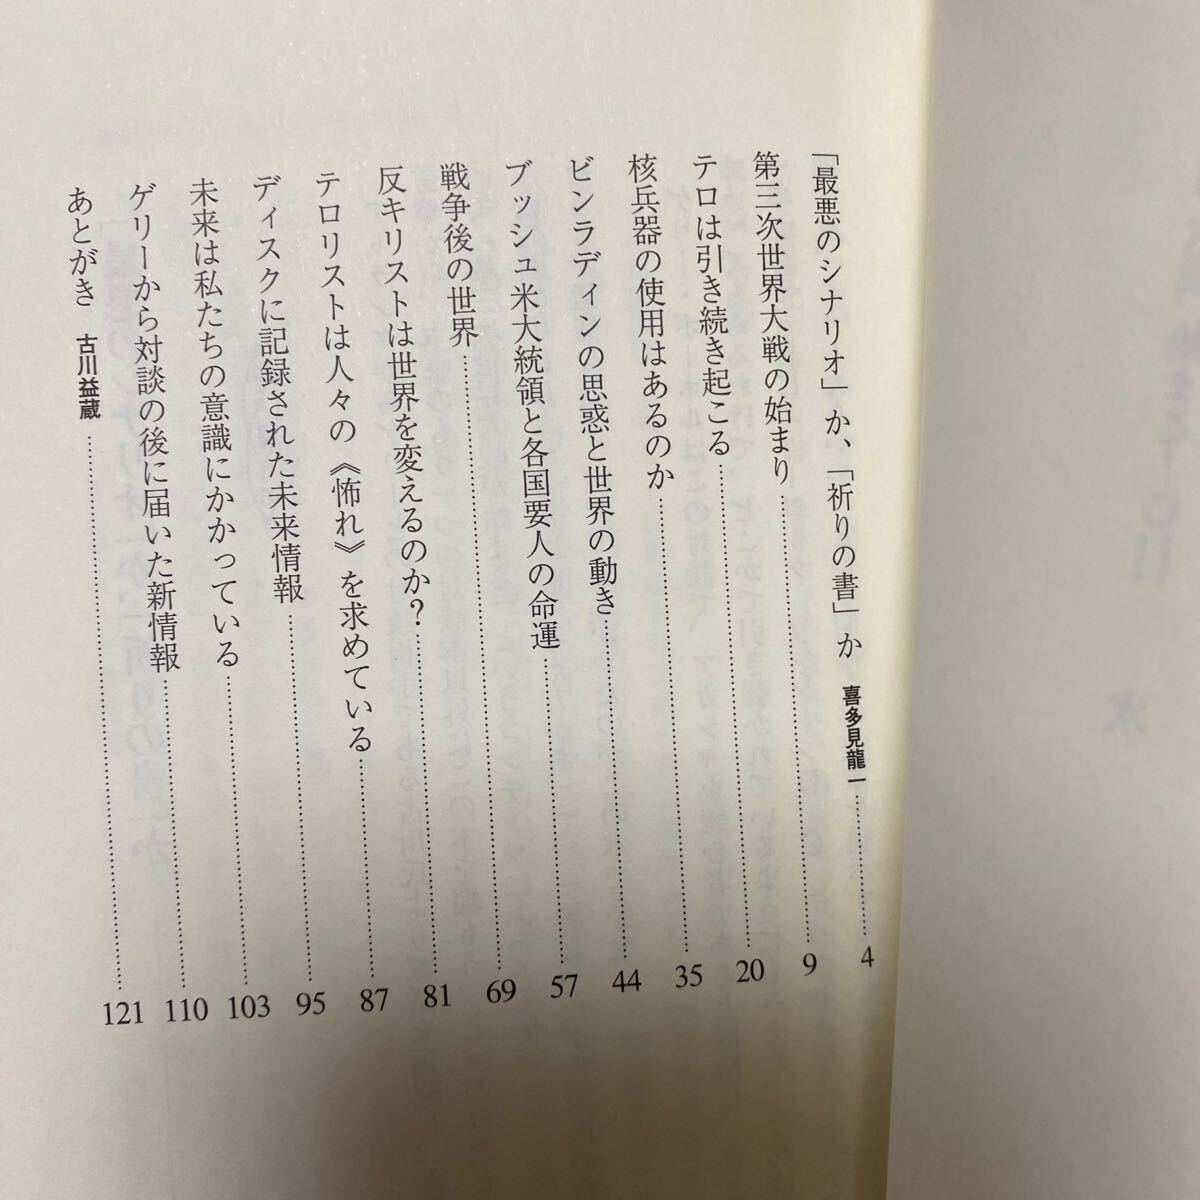 「最悪のシナリオ」か、「祈りの書」か 喜多見龍一 4
第三次世界大戦の始まり 9
テロは引き続き起こる 20
核兵器の使用はあるのか 35
ビンラディンの思惑と世界の動き 44
ブッシュ米大統領と各国要人の命運 57
戦争後の世界 69
反キリストは世界を変えるのか? 81
テロリストは人々の《怖れ》を求めている 87
ディスクに記録された未来情報 95
未来は私たちの意識にかかっている 103
ゲリーから対談の後に届いた新情報 110
あとがき 古川益蔵 121